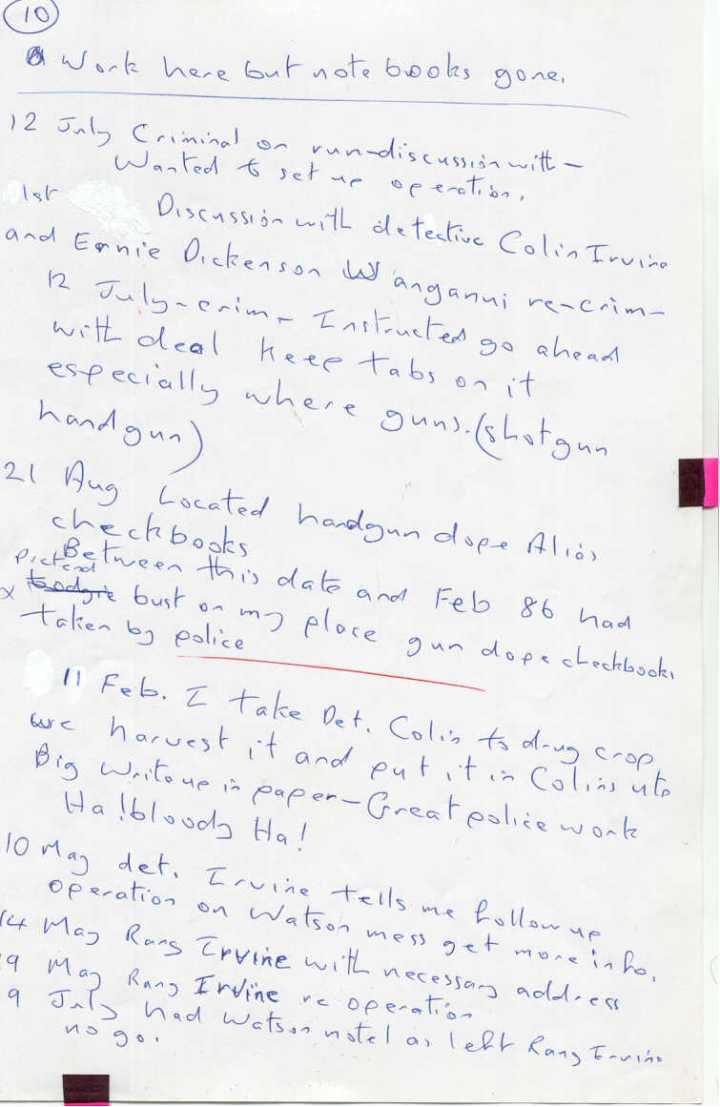 10
Work here but note books gone.
12 July Criminal on run-discussion with -
Wanted to set up operation.
1st Discussion with detective Colin Irvine
and Ernie Dickenson Wanganui re-crim-
12 July-crim- Instructed go ahead
with deal keep tabs on it
especially where guns. (shotgun
handgun)
21 Aug Located handgun dope Alias
checkbooks
Between this date and Feb 86 had
pretend
x bust on my place gun dope checkbooks
taken by police
11 Feb. I take Det. Colin to drug crop
we harvest it and put it in Colins ute
Big write up in paper-Great police work
Ha! bloody Ha!
10 May det. Irvine tells me follow up
operation on Watson mess get more info.
14 May Rang Irvine with necessary address
19 May Rang Irvine re operation
9 July had Watson note as left Rang Irvine
no go.